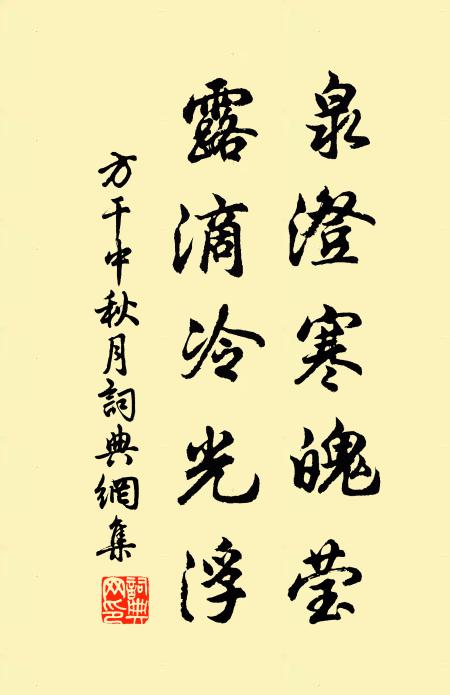 泉澄寒魄莹
露滴冷光浮
方干中秋月詞典網集
詞典网印